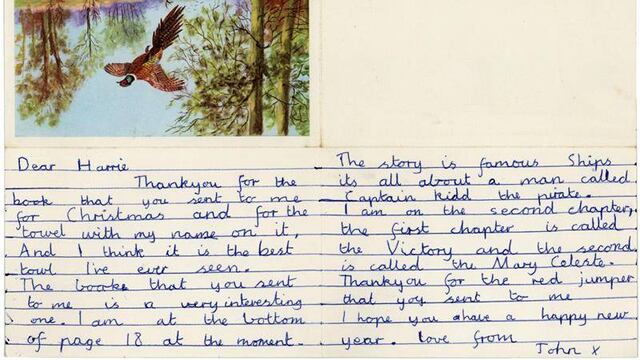 Dear Harrie
Thankyou for the
book that you sent to me
for Christmas and for the
towel with my name on it,
And I think it is the best
towl I've ever seen.
The book that you sent
to me is a very interesting
one. I am at the bottom
of page 18 at the moment.
The story is famous Ships
its all about a man called
Captain kidd the pirate.
I am on the second chapter,
the first chapter is called
the Victory and the second
is called the Mary Celeste.
Thankyou for the red jumper
that you sent to me
I hope you ahave a happy new
year. love from
John x